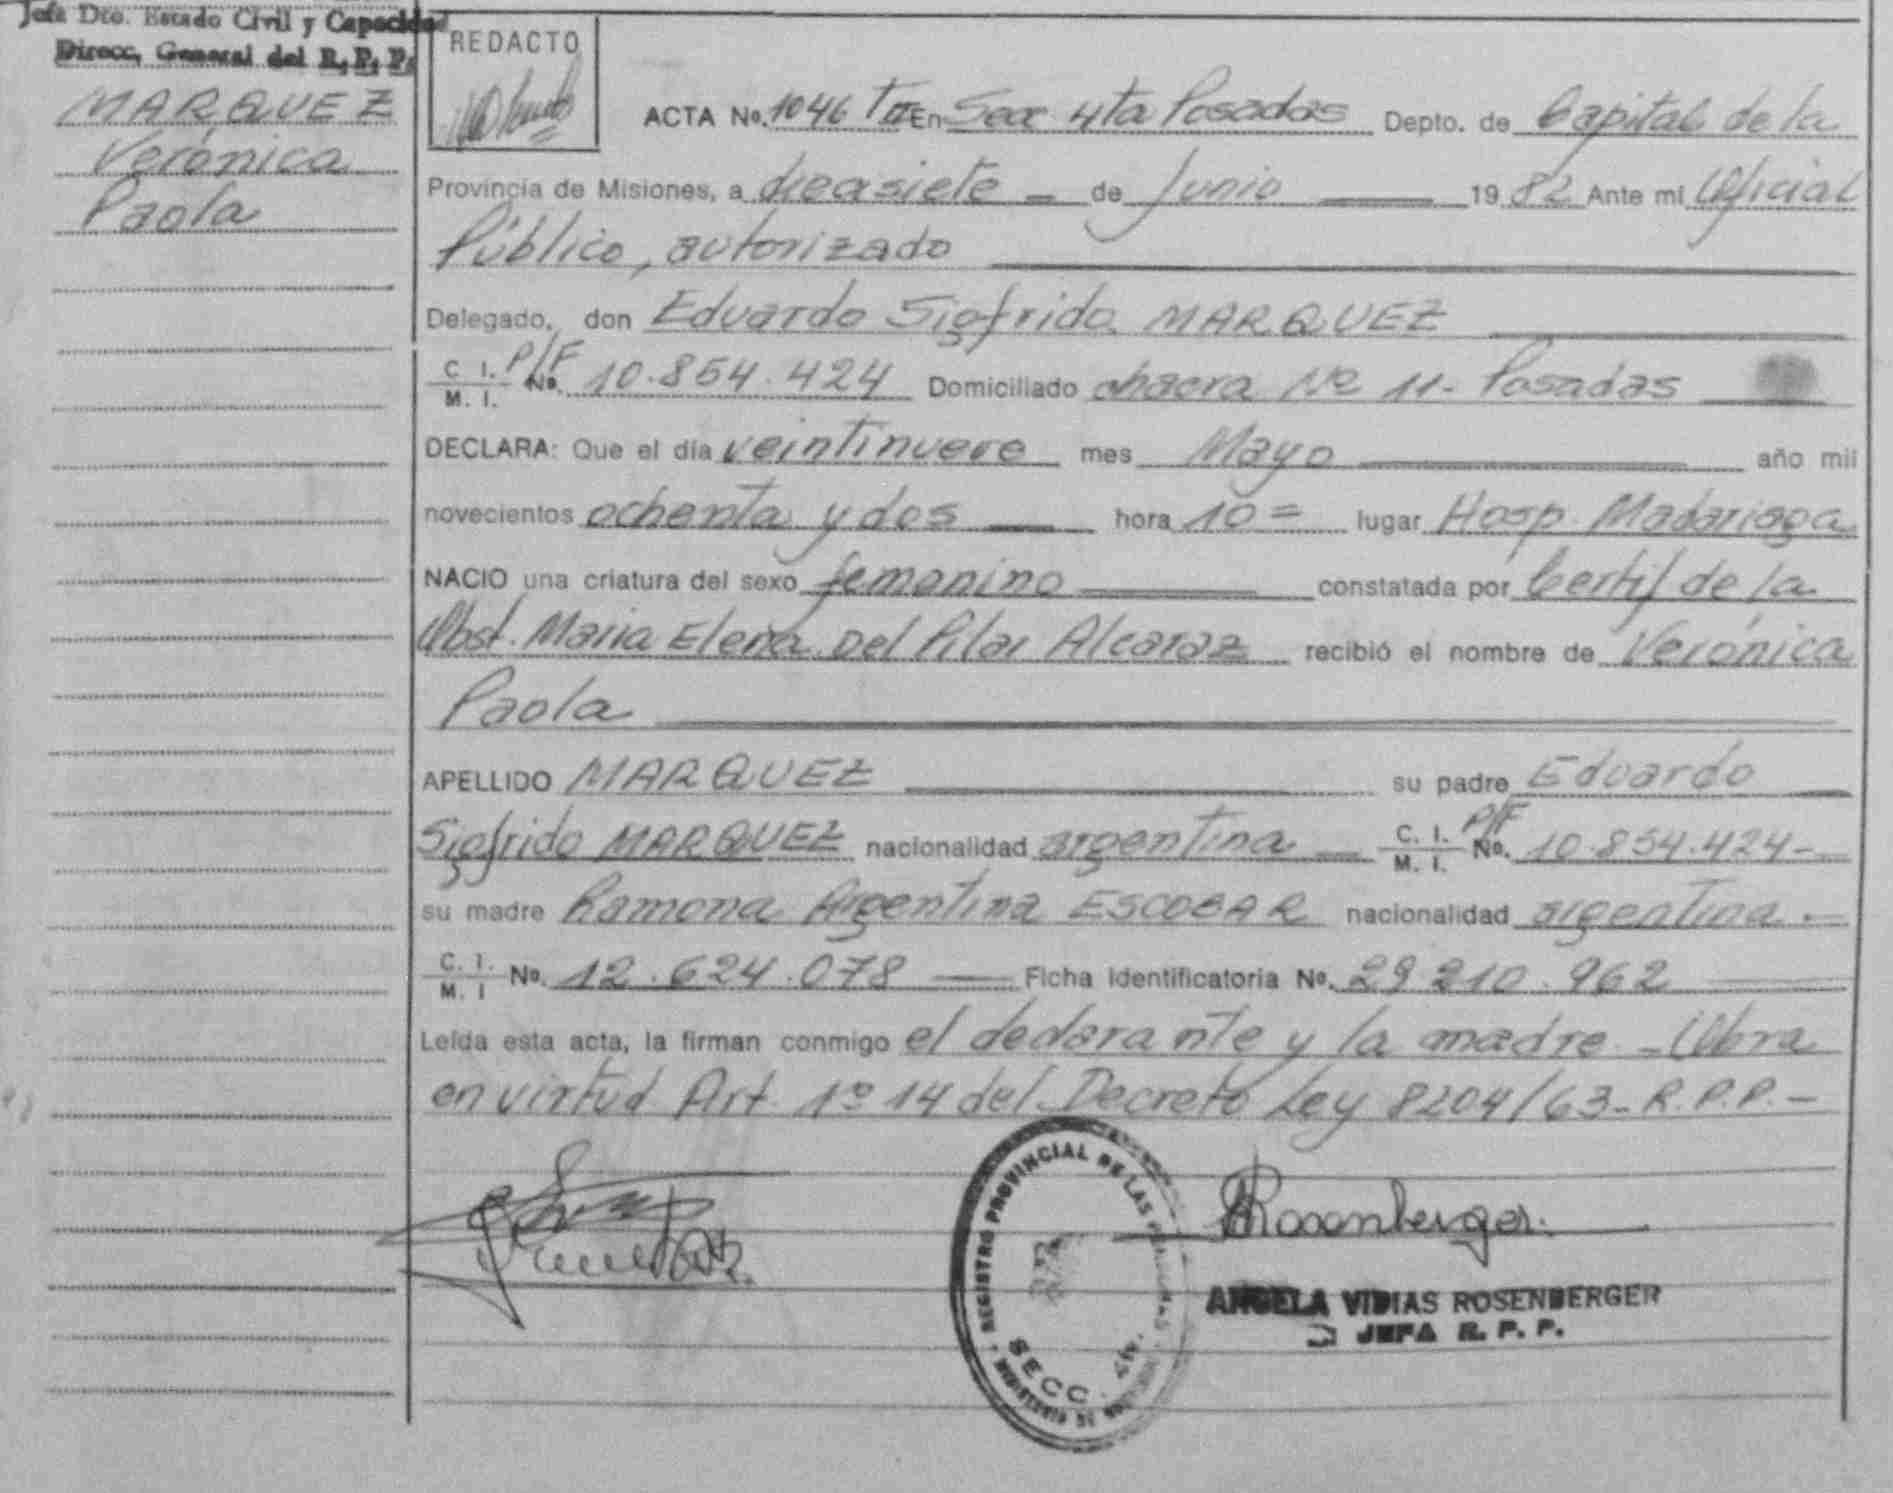 Jefa Dto. Estado Civil y Capacidad
Direcc. General del R. P. P.
MARQUEZ
Verónica
Paola
REDACTO
ACTA No. 1046 TII En Secc 4ta Posadas Depto. de Capital de la
Provincia de Misiones, a diecisiete de Junio 1982 Ante mi Oficial
Público, autorizado
Delegado, don Eduardo Sigfrido MARQUEZ
C. I. M. I. P/F No. 10.854.424 Domiciliado chacra No 11 - Posadas
DECLARA: Que el día veintinueve mes Mayo año mil
novecientos ochenta y dos hora 10 = lugar Hosp. Madariaga
NACIO una criatura del sexo femenino constatada por Certif de la
Obst. Maria Elena Del Pilar Alcaraz recibió el nombre de Verónica
Paola
APELLIDO MARQUEZ su padre Eduardo
Sigfrido MARQUEZ nacionalidad argentina C. I. M. I. P/F No. 10.854.424-
su madre Ramona Argentina ESCOBAR nacionalidad argentina.-
C. I. M. I No. 12.624.078 Ficha Identificatoria No. 29 210.962
Leída esta acta, la firman conmigo el declarante y la madre - Obra
en virtud Art. 1º 14 del Decreto Ley 8204/63- R.P.P.-
REGISTRO PROVINCIAL DE LAS
SECC. 4ta.
MINISTERIO DE
Rosenberger.
ANGELA VIDIAS ROSENBERGER
JEFA R. P. P.